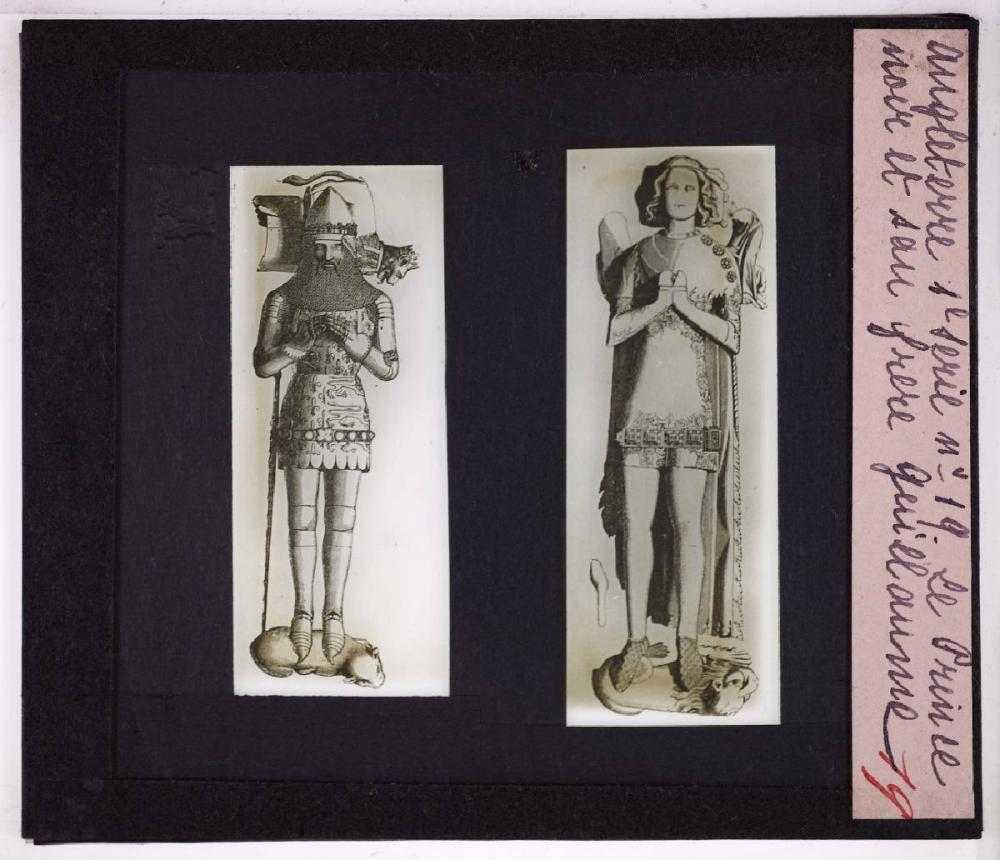 angleterre 1e serie n° 19. Le Prince
noir et sau frere guillaume 19